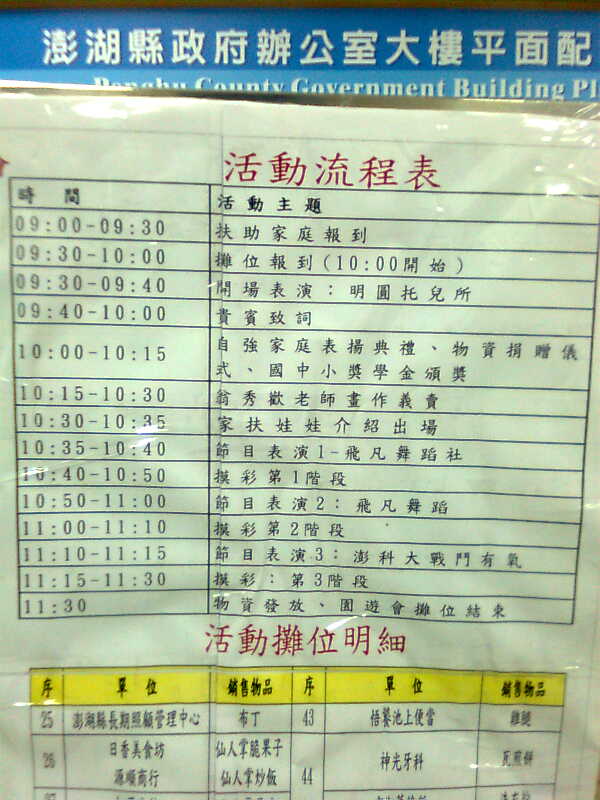 澎湖縣政府辦公室大樓平面配
Penghu County Government Building Pl
活動流程表
時 間 活動主題
09:00-09:30 扶助家庭報到
09:30-10:00 攤位報到(10:00開始)
09:30-09:40 開場表演：明圓托兒所
09:40-10:00 貴賓致詞
10:00-10:15 自強家庭表揚典禮、物資捐贈儀
式、國中小獎學金頒獎
10:15-10:30 翁秀歡老師畫作義賣
10:30-10:35 家扶娃娃介紹出場
10:35-10:40 節目表演1-飛凡舞蹈社
10:40-10:50 摸彩第1階段
10:50-11:00 節目表演2：飛凡舞蹈
11:00-11:10 摸彩第2階段
11:10-11:15 節目表演3：澎科大戰鬥有氧
11:15-11:30 摸彩：第3階段
11:30 物資發放、園遊會攤位結束
活動攤位明細
序 單位 銷售物品 序 單位 銷售物品
25 澎湖縣長期照顧管理中心 布丁 43 悟饕池上便當 雞腿
26 日香美食坊 仙人掌脆果子 神光牙科 瓦煎餅
源順商行 仙人掌炒飯 44